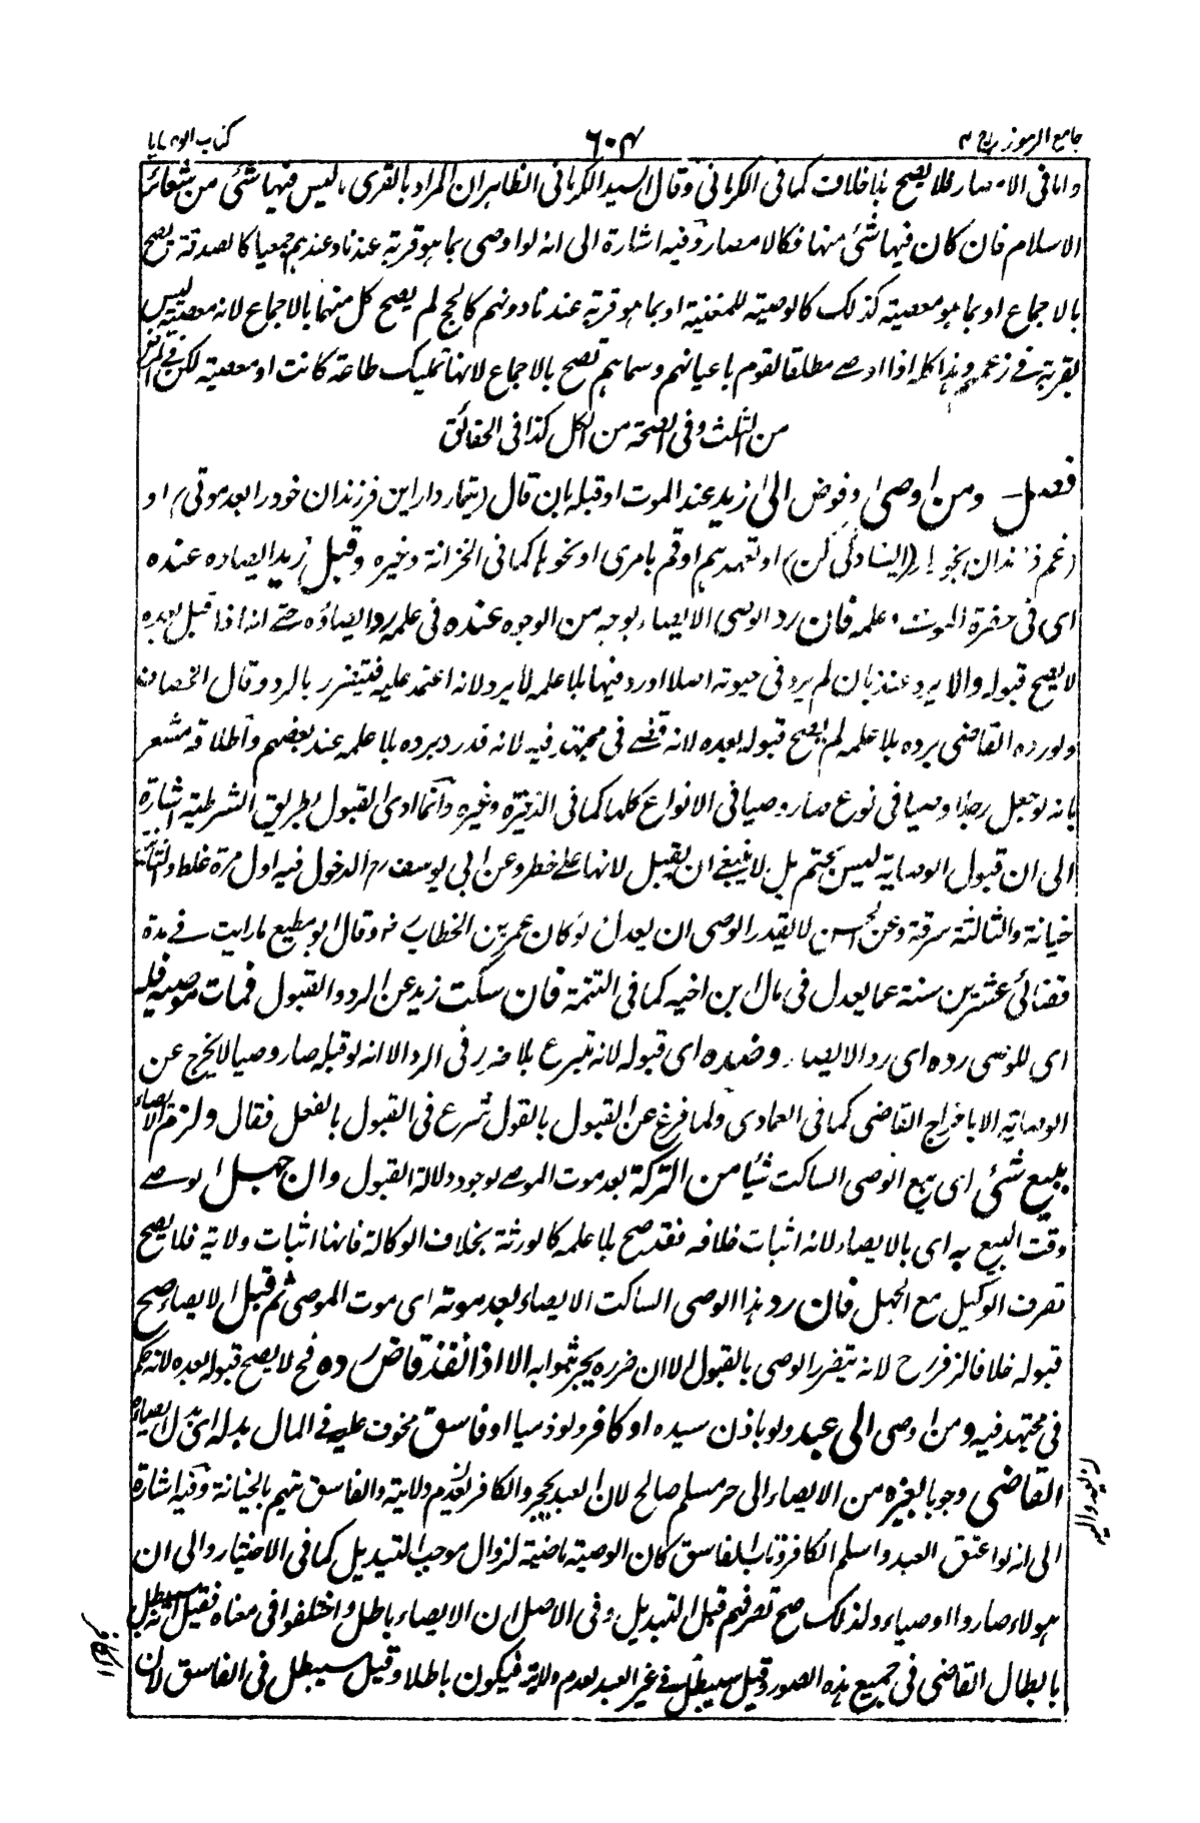 جامع الرموز ج ٣
٦٠٣
كتاب الوصايا
واما فى الامصار فلا يصح بلا خلاف كما فى الكرمانى وقال السيد الكرمانى الظاهر ان المراد بالقرى ما ليس فيها شئ من شعائر
الاسلام فان كان فيها شئ منها فكالامصار وفيه اشارة الى انه لو اوصى بما هو قربة عندنا وعندهم جميعا كالصدقة يصح
بالاجماع او بما هو معصية كذلك كالوصية للمغنية او بما هو قربة عندنا دونهم كالحج لم يصح كل منهما بالاجماع لانه معصية ليس
بقربة فى زعمهم وهذا كله اذا اوصى مطلقا لقوم باعيانهم وسماهم تصح بالاجماع لانها تمليك طاعة كانت او معصية لكن فى المرض
من الثلث وفى الصحة من الكل كذا فى الحقائق
فصل ومن اوصى وفوض الى زيد عند الموت او قبله بان قال (تيمار دار اين فرزندان خود را بعد موتى) او
(غم فرزندان بخور) او تعهدهم او قم بامرى او نحوها كما فى الخزانة وغيره وقبل زيد ايصاءه عنده
اى فى حضرة الموت وعلمه فان رد الوصى الايصاء بوجه من الوجوه عنده فى علمه رد ايصاؤه حتى انه اذا قبل بعده
لا يصح قبوله والا يرد عنده بان لم يرد فى حيوته اصلا او رد فيها بلا علمه لا يرد لانه اعتمد عليه فيتضرر بالرد وقال الخصاف
ولو رده القاضى برده بلا علمه لم يصح قبوله بعده لانه قضى فى مجتهد فيه لانه قد رد برده بلا علمه عند بعضهم واطلاقه مشعر
بانه لو جعل رجلا وصيا فى نوع صار وصيا فى الانواع كلها كما فى الذخيرة وغيره وانما ادى القبول بطريق الشرطية اشارة
الى ان قبول الوصاية ليس بحتم بل لا ينبغى ان يقبل لانها على خطر وعن ابى يوسف رح الدخول فيه اول مرة غلط والثانية
خيانة والثالثة سرقة وعن الحسن لا يقدر الوصى ان يعدل لو كان عمر بن الخطاب رض وقال ابو مطيع ما رايت فى مدة
قضائى عشرين سنة عما يعدل فى مال ابن اخيه كما فى التتمة فان سكت زيد عن الرد والقبول فمات موصيه فله
اى للوصى رده اى رد الايصاء وضده اى قبوله لانه متبرع بلا ضرر فى الرد الا انه لو قبله صار وصيا لا يخرج عن
الوصاية الا باخراج القاضى كما فى العمادى ولما فرغ عن القبول بالقول شرع فى القبول بالفعل فقال ولزم الايصاء
ببيع شئ اى بيع الوصى الساكت شيئا من التركة بعد موت الموصى لوجود دلالة القبول وان جهل الوصى
وقت البيع به اى بالايصاء لانه اثبات خلافه فقد صح بلا علمه كالورثة بخلاف الوكالة فانها اثبات ولاية فلا يصح
تصرف الوكيل مع الجهل فان رد هذا الوصى الساكت الايصاء بعد موته اى موت الموصى ثم قبل الايصاء صح
قبوله خلافا لزفر رح لانه يتضرر الوصى بالقبول الا ان ضرره يجبر بثوابه الا اذا نفذ قاض رده فح لا يصح قبوله بعده لانه حكم
فى مجتهد فيه ومن اوصى الى عبد ولو باذن سيده او كافر ولو ذميا او فاسق مخوف عليه فى المال بدله اى بدل الايصاء
القاضى وجوبا بغيره من الايصاء الى حر مسلم صالح لان العبد يحجر والكافر لعدم ولايته والفاسق متهم بالخيانة وفيه اشارة
الى انه لو اعتق العبد واسلم الكافر وتاب الفاسق كان الوصية ماضية لزوال موجب التبديل كما فى الاختيار والى ان
هولاء صاروا اوصياء ولذلك صح تصرفهم قبل التبديل وفى الاصل ان الايصاء باطل واختلفوا فى معناه فقيل انه سيبطل
بابطال القاضى فى جميع هذه الصور وقيل سيبطل فى غير العبد لعدم ولايته فيكون باطلا وقيل سيبطل فى الفاسق لان